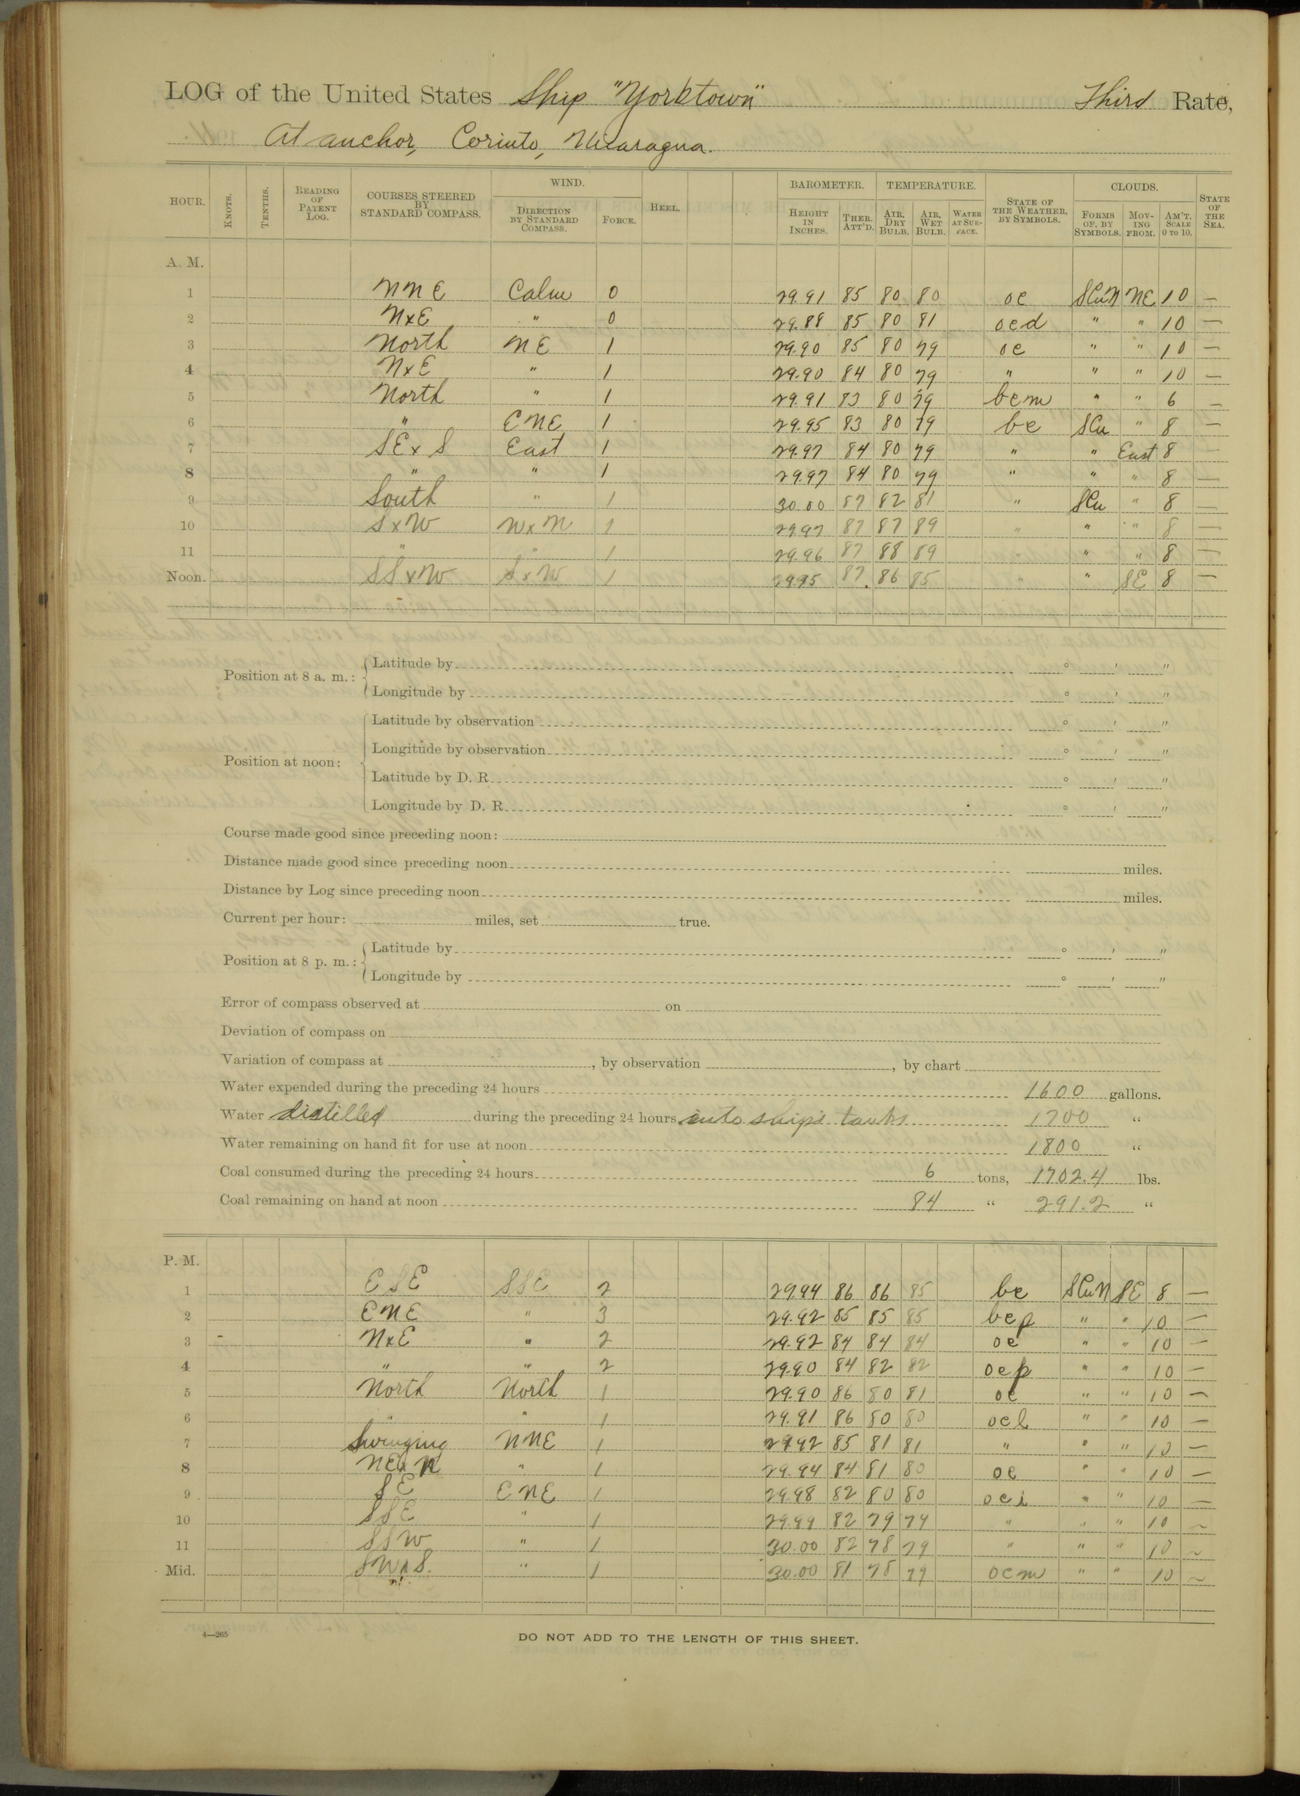 LOG of the United States Ship "Yorktown" Third Rate,
At anchor, Corinto, Nicaragua.
HOUR. KNOTS. TENTHS. READING OF PATENT LOG. COURSES STEERED BY STANDARD COMPASS. WIND. DIRECTION BY STANDARD COMPASS. FORCE. HEEL. BAROMETER. HEIGHT IN INCHES. THER. ATT'D. TEMPERATURE. AIR, DRY BULB. AIR, WET BULB. WATER AT SURFACE. STATE OF THE WEATHER, BY SYMBOLS. CLOUDS. FORMS OF, BY SYMBOLS. MOVING FROM. AM'T. SCALE 0 TO 10. STATE OF THE SEA.
A. M.
1 NNE Calm 0 29.91 85 80 80 oc SCuN NE 10 —
2 NxE " 0 29.88 85 80 81 ocd " " 10 —
3 North NE 1 29.90 85 80 79 oc " " 10 —
4 NxE " 1 29.90 84 80 79 " " " 10 —
5 North " 1 29.91 83 80 79 bcm " " 6 —
6 " ENE 1 29.95 83 80 79 bc SCu " 8 —
7 SExS East 1 29.97 84 80 79 " " East 8 —
8 " " 1 29.97 84 80 79 " " " 8 —
9 South " 1 30.00 87 82 81 " SCu " 8 —
10 SxW WxN 1 29.97 87 87 89 " " " 8 —
11 " " 1 29.96 87 88 89 " " 8 —
Noon. SSxW SxW 1 29.95 87 86 85 " " SE 8 —
Position at 8 a. m.: Latitude by ° ' "
Longitude by ° ' "
Position at noon: Latitude by observation ° ' "
Longitude by observation ° ' "
Latitude by D. R. ° ' "
Longitude by D. R. ° ' "
Course made good since preceding noon:
Distance made good since preceding noon miles.
Distance by Log since preceding noon miles.
Current per hour: miles, set true.
Position at 8 p. m.: Latitude by ° ' "
Longitude by ° ' "
Error of compass observed at on
Deviation of compass on
Variation of compass at , by observation , by chart
Water expended during the preceding 24 hours 1600 gallons.
Water distilled during the preceding 24 hours into ships tanks 1700 "
Water remaining on hand fit for use at noon 1800 "
Coal consumed during the preceding 24 hours 6 tons, 1702.4 lbs.
Coal remaining on hand at noon 84 " 291.2 "
P. M.
1 ESE SSE 2 29.94 86 86 85 bc SCuN SE 8 —
2 ENE " 3 29.92 85 85 85 bcp " " 10 —
3 NxE " 2 29.92 84 84 84 oc " " 10 —
4 " " 2 29.90 84 82 82 ocp " " 10 —
5 North North 1 29.90 86 80 81 oc " " 10 —
6 " " 1 29.91 86 80 80 ocl " " 10 —
7 Swinging NNE 1 29.92 85 81 81 " " " 10 —
8 NExN " 1 29.94 84 81 80 oc " " 10 —
9 SE ENE 1 29.98 82 80 80 oci " " 10 —
10 SSE " 1 29.99 82 79 79 " " " 10 ~
11 SSW " 1 30.00 82 78 79 " " " 10 ~
Mid. SWxS. " 1 30.00 81 78 79 ocm " " 10 ~
4—265
DO NOT ADD TO THE LENGTH OF THIS SHEET.